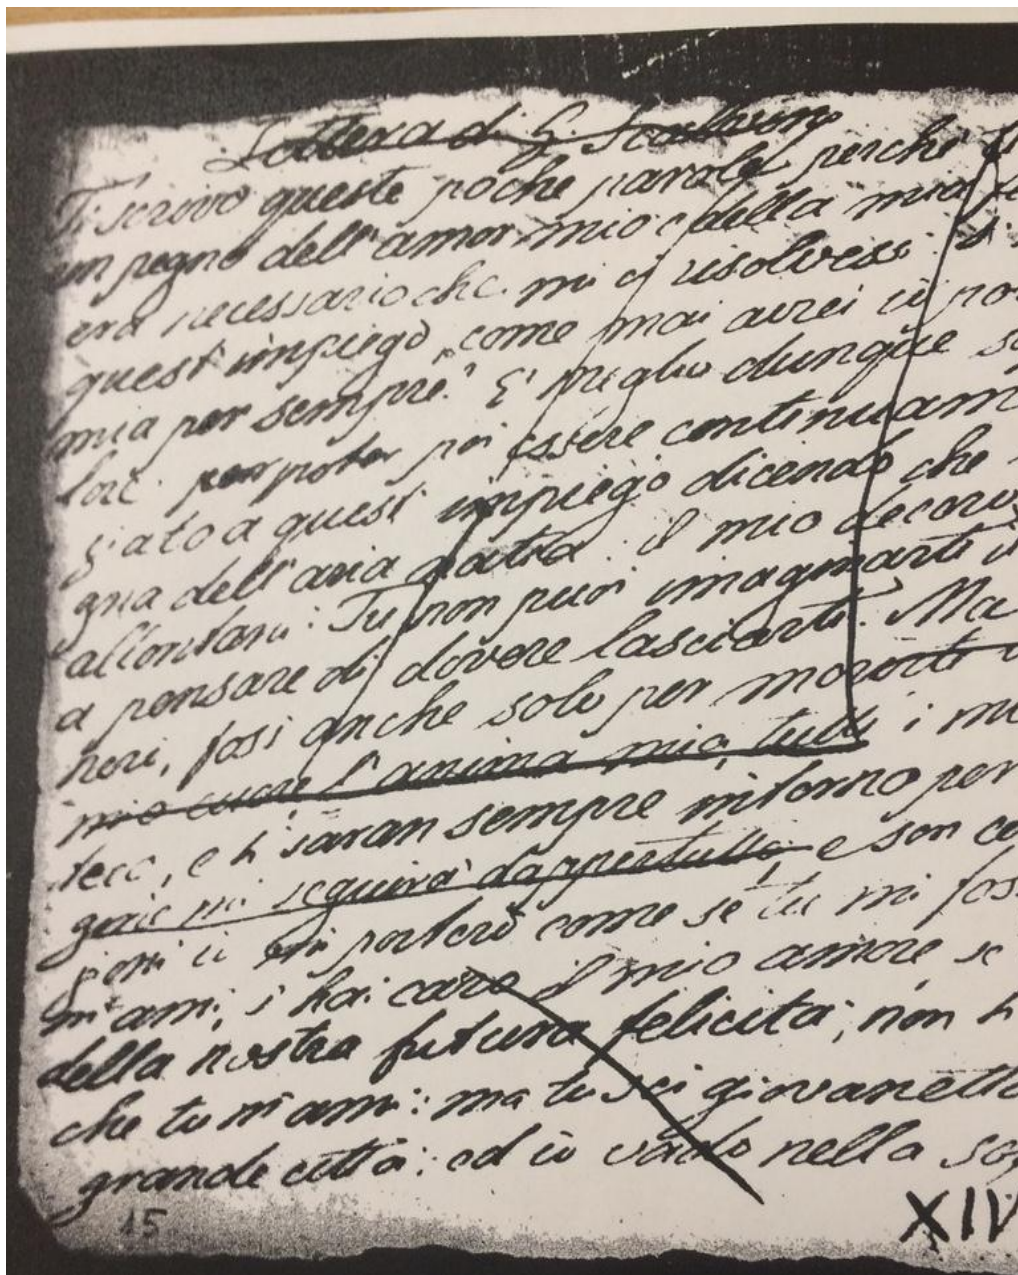 Lettera di G. Scalvini
Ti scrivo queste poche parole perchè
un pegno dell'amor mio e della mia
era necessario che mi ci risolvessi.
quest'impiego, come mai avrei io
mia per sempre? E' meglio dunque
per poter poi essere continuam
a quest' impiego dicendo che
gna dell'aria patria: il mio decoro
allontani: Tu non puoi imaginarti
a pensare di dovere lasciarti. Ma
fossi anche solo per
mio cuore l'anima mia, tutti i
teco, e ti saran sempre intorno per
mi seguirà dappertutto, e son ce
porterò come se tu mi fos
m'ami, s'hai caro il mio amore, se
della nostra futura felicità, non
che tu m'ami: ma tu sei giovanetta
grande città: ed io vado nella
15 XIV